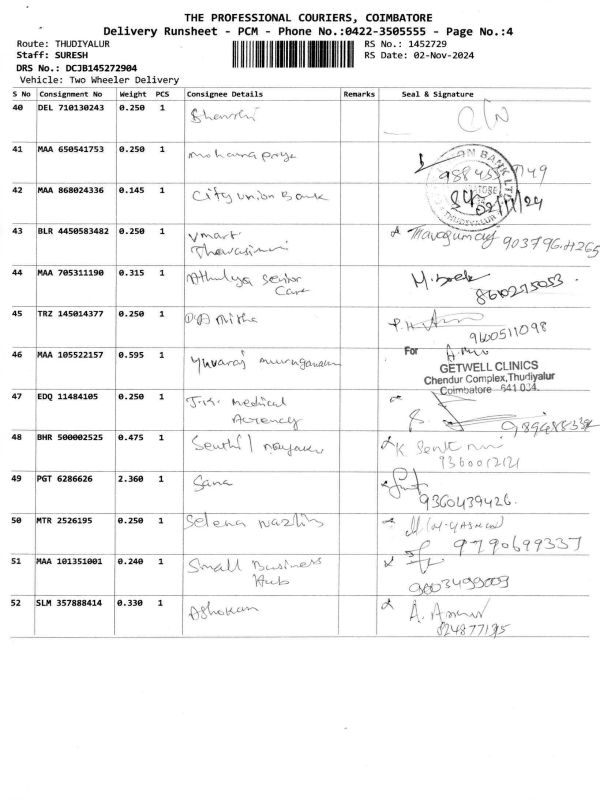 THE PROFESSIONAL COURIERS, COIMBATORE
Delivery Runsheet - PCM - Phone No.:0422-3505555 - Page No.:4
Route: THUDIYALUR RS No.: 1452729
Staff: SURESH RS Date: 02-Nov-2024
DRS No.: DCJB145272904
Vehicle: Two Wheeler Delivery
S No Consignment No Weight PCS Consignee Details Remarks Seal & Signature
40 DEL 710130243 0.250 1
41 MAA 650541753 0.250 1 mohanapriya
42 MAA 868024336 0.145 1 City union Bank
02/11/24
THUDIYALUR
43 BLR 4450583482 0.250 1 Vmart
44 MAA 705311190 0.315 1 Athulya senior
Care
8610275053
45 TRZ 145014377 0.250 1
9600511098
46 MAA 105522157 0.595 1 Yuvaraj muruganandam
For
GETWELL CLINICS
Chendur Complex,Thudiyalur
Coimbatore 641 034.
47 EDQ 11484105 0.250 1 J.K. medical
Agency
48 BHR 500002525 0.475 1 Senthil nayaku
49 PGT 6286626 2.360 1 Sana
9360439426
50 MTR 2526195 0.250 1 Selena nazlin
9790699337
51 MAA 101351001 0.240 1 Small Business
Hub
9003499009
52 SLM 357888414 0.330 1 Ashokan